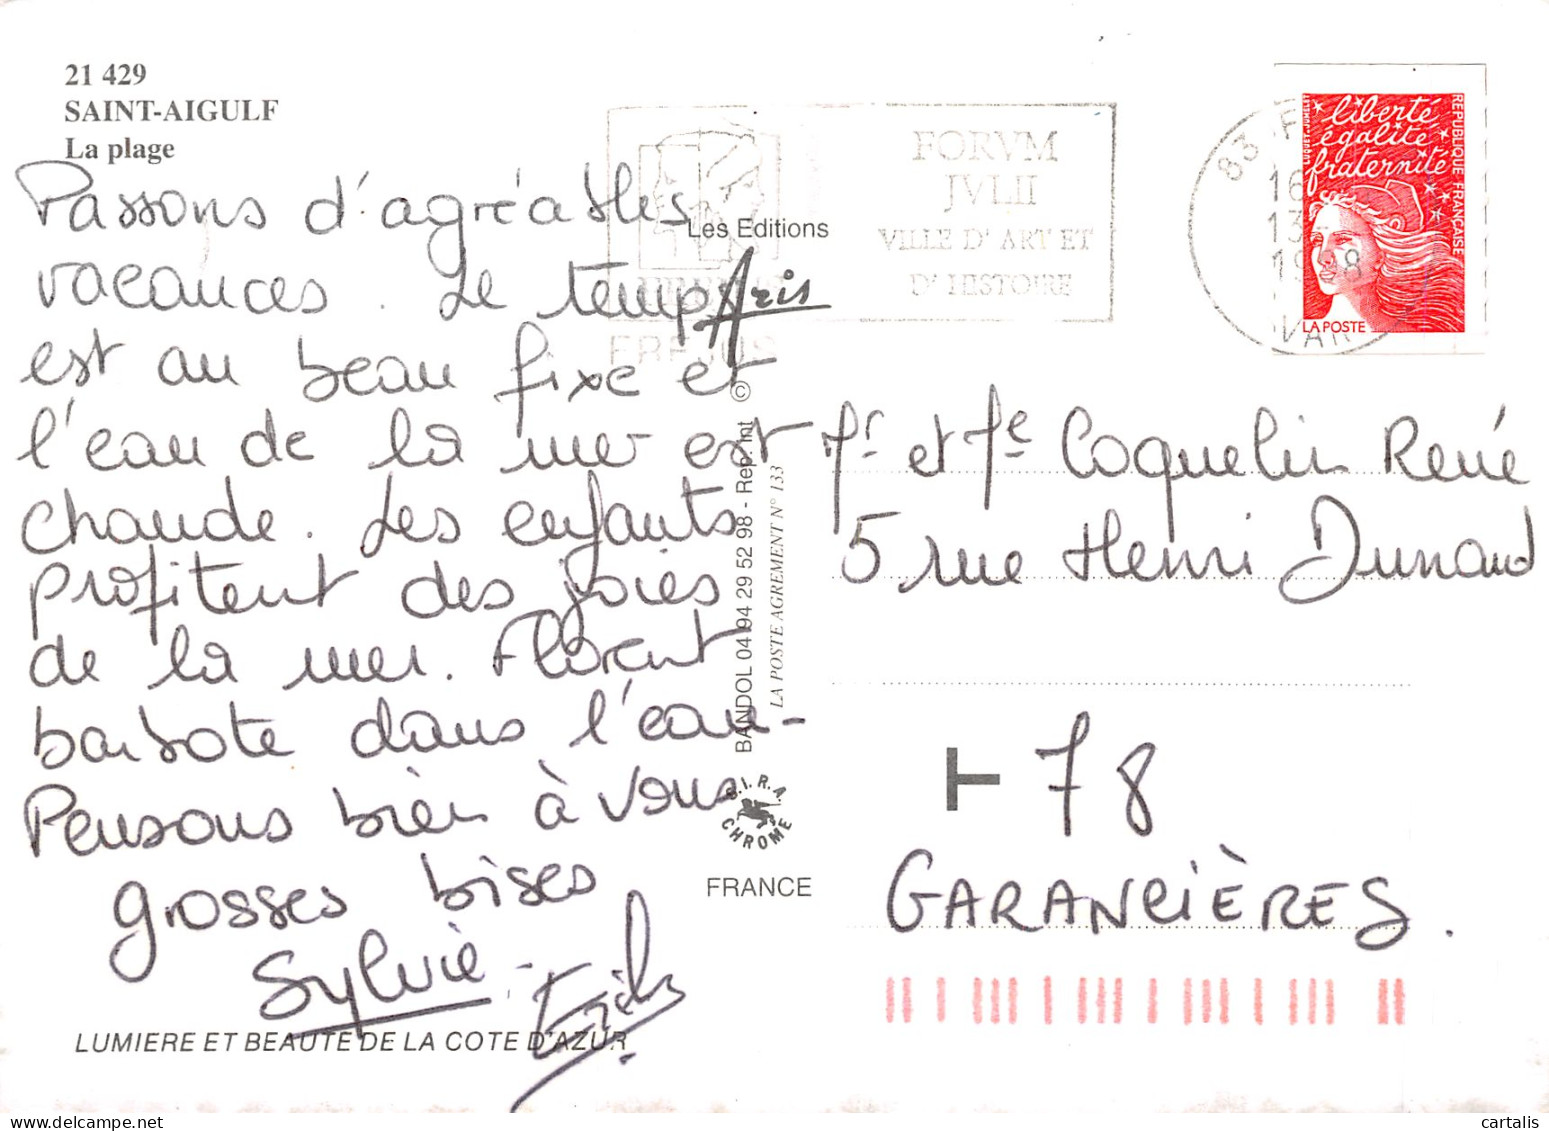 21 429
SAINT-AIGULF
La plage
Passons d'agréables
vacances. Le temps
est au beau fixe et
l'eau de la mer est
chaude. Les enfants
profitent des joies
de la mer. Florent
barbote dans l'eau-
Pensons bien à vous
grosses bises
Sylvie -
LUMIERE ET BEAUTE DE LA COTE D'AZUR
Les Editions
Aris
BANDOL 04 94 29 52 98 - Rep. Int ©
LA POSTE AGREMENT N° 133
S.I.R.A.
CHROME
FRANCE
FORVM
JVLII
VILLE D'ART ET
D'HISTOIRE
FREJUS
83 F
16
13
1998
VAR
liberté
égalité
fraternité
REPUBLIQUE FRANÇAISE
LA POSTE
Mr et Me Coquelin René
5 rue Henri Dunand
T 78
GARANCIÈRES.
cartalis